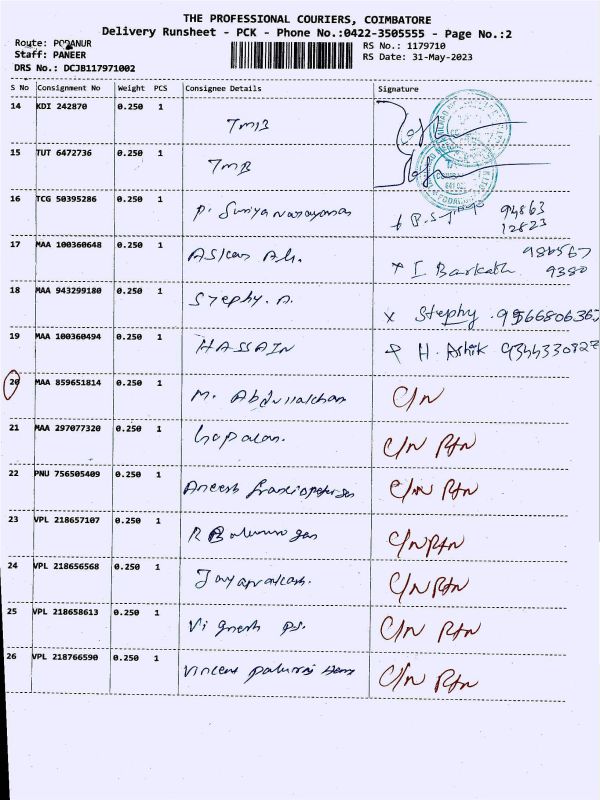 THE PROFESSIONAL COURIERS, COIMBATORE
Delivery Runsheet - PCK - Phone No.:0422-3505555 - Page No.:2
Route: PODANUR
RS No.: 1179710
Staff: PANEER
RS Date: 31-May-2023
DRS No.: DCJB117971002
S No Consignment No Weight PCS Consignee Details Signature
14 KDI 242870 0.250 1 TMB
15 TUT 6472736 0.250 1 TMB
16 TCG 50395286 0.250 1 P. Suriya Narayanan 94863
12823
17 MAA 100360648 0.250 1 Askar Ali. I Barkath 984567
9380
18 MAA 943299180 0.250 1 Stephy. A. x Stephy .9566806362
19 MAA 100360494 0.250 1 HASSAIN H. Ashik 9344330827
20 MAA 859651814 0.250 1 M. Abdullakhan C/N
21 MAA 297077320 0.250 1 Gopalan. C/N Rtn
22 PNU 756505409 0.250 1 Aneesh C/N Rtn
23 VPL 218657107 0.250 1 R Balamurugan C/N Rtn
24 VPL 218656568 0.250 1 Jayaprakash. C/N Rtn
25 VPL 218658613 0.250 1 Vignesh PS. C/N Rtn
26 VPL 218766590 0.250 1 Vincent C/N Rtn